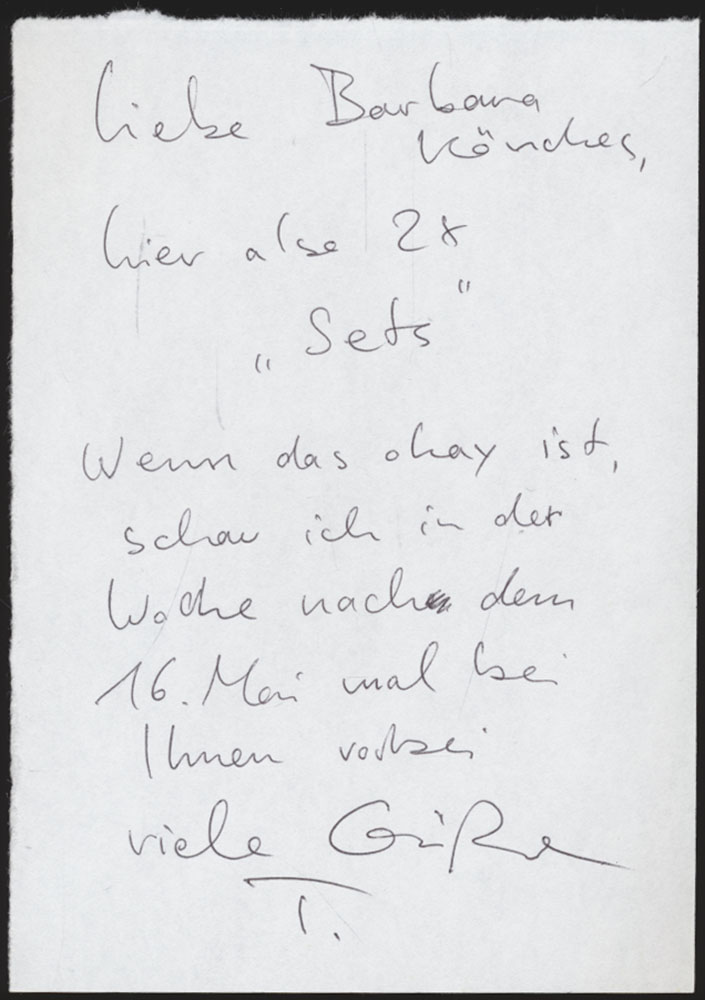 Liebe Barbara
Könches,
hier also 2x
„Sets“
Wenn das okay ist,
schau ich in der
Woche nach dem
16. Mai mal bei
Ihnen vorbei
viele Grüße
T.